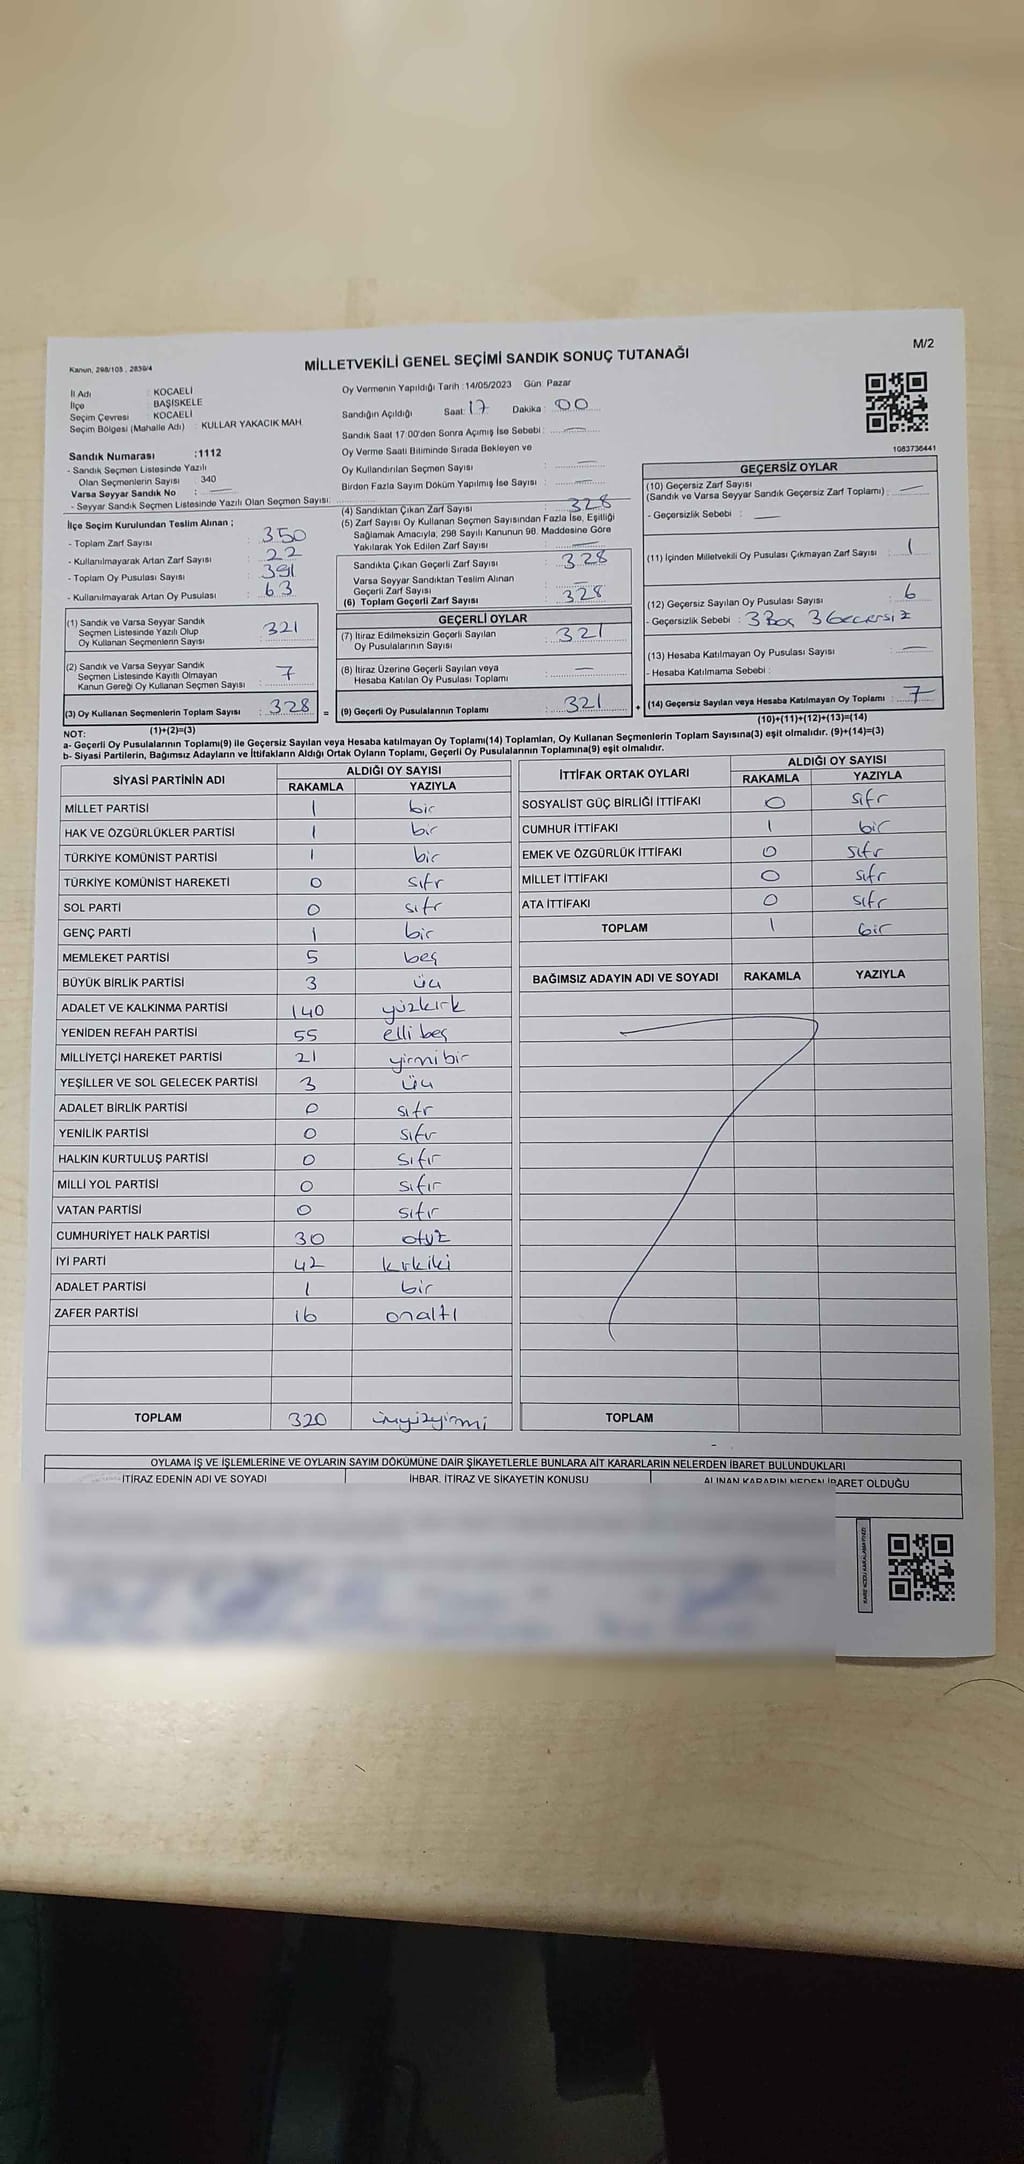 M/2
Kanun, 298/105 , 2839/4
MİLLETVEKİLİ GENEL SEÇİMİ SANDIK SONUÇ TUTANAĞI
İl Adı : KOCAELİ
İlçe : BAŞİSKELE
Seçim Çevresi : KOCAELİ
Seçim Bölgesi (Mahalle Adı) : KULLAR YAKACIK MAH.
Oy Vermenin Yapıldığı Tarih :14/05/2023 Gün: Pazar
Sandığın Açıldığı Saat: 17 Dakika : 00
Sandık Saat 17:00'den Sonra Açımış İse Sebebi : —
Oy Verme Saati Bitiminde Sırada Bekleyen ve
Oy Kullandırılan Seçmen Sayısı : —
Birden Fazla Sayım Döküm Yapılmış İse Sayısı : —
1083736441
Sandık Numarası :1112
- Sandık Seçmen Listesinde Yazılı
Olan Seçmenlerin Sayısı 340
Varsa Seyyar Sandık No : —
- Seyyar Sandık Seçmen Listesinde Yazılı Olan Seçmen Sayısı:
İlçe Seçim Kurulundan Teslim Alınan ;
- Toplam Zarf Sayısı : 350
- Kullanılmayarak Artan Zarf Sayısı : 22
- Toplam Oy Pusulası Sayısı : 391
- Kullanılmayarak Artan Oy Pusulası : 63
(1) Sandık ve Varsa Seyyar Sandık
Seçmen Listesinde Yazılı Olup
Oy Kullanan Seçmenlerin Sayısı : 321
(2) Sandık ve Varsa Seyyar Sandık
Seçmen Listesinde Kayıtlı Olmayan
Kanun Gereği Oy Kullanan Seçmen Sayısı : 7
(3) Oy Kullanan Seçmenlerin Toplam Sayısı : 328 =
(1)+(2)=(3)
(4) Sandıktan Çıkan Zarf Sayısı : 328
(5) Zarf Sayısı Oy Kullanan Seçmen Sayısından Fazla İse, Eşitliği
Sağlamak Amacıyla, 298 Sayılı Kanunun 98. Maddesine Göre
Yakılarak Yok Edilen Zarf Sayısı : —
Sandıkta Çıkan Geçerli Zarf Sayısı : 328
Varsa Seyyar Sandıktan Teslim Alınan
Geçerli Zarf Sayısı : —
(6) Toplam Geçerli Zarf Sayısı : 328
GEÇERLİ OYLAR
(7) İtiraz Edilmeksizin Geçerli Sayılan
Oy Pusulalarının Sayısı : 321
(8) İtiraz Üzerine Geçerli Sayılan veya
Hesaba Katılan Oy Pusulası Toplamı : —
(9) Geçerli Oy Pusulalarının Toplamı : 321 +
GEÇERSİZ OYLAR
(10) Geçersiz Zarf Sayısı
(Sandık ve Varsa Seyyar Sandık Geçersiz Zarf Toplamı) : —
- Geçersizlik Sebebi : —
(11) İçinden Milletvekili Oy Pusulası Çıkmayan Zarf Sayısı : 1
(12) Geçersiz Sayılan Oy Pusulası Sayısı : 6
- Geçersizlik Sebebi : 3 Boş 3 Geccersiz
(13) Hesaba Katılmayan Oy Pusulası Sayısı : —
- Hesaba Katılmama Sebebi :
(14) Geçersiz Sayılan veya Hesaba Katılmayan Oy Toplamı : 7
(10)+(11)+(12)+(13)=(14)
NOT:
a- Geçerli Oy Pusulalarının Toplamı(9) ile Geçersiz Sayılan veya Hesaba katılmayan Oy Toplamı(14) Toplamları, Oy Kullanan Seçmenlerin Toplam Sayısına(3) eşit olmalıdır. (9)+(14)=(3)
b- Siyasi Partilerin, Bağımsız Adayların ve İttifakların Aldığı Ortak Oyların Toplamı, Geçerli Oy Pusulalarının Toplamına(9) eşit olmalıdır.
SİYASİ PARTİNİN ADI ALDIĞI OY SAYISI
RAKAMLA YAZIYLA
MİLLET PARTİSİ 1 bir
HAK VE ÖZGÜRLÜKLER PARTİSİ 1 bir
TÜRKİYE KOMÜNİST PARTİSİ 1 bir
TÜRKİYE KOMÜNİST HAREKETİ 0 sıfr
SOL PARTİ 0 sıfr
GENÇ PARTİ 1 bir
MEMLEKET PARTİSİ 5 beş
BÜYÜK BİRLİK PARTİSİ 3 üç
ADALET VE KALKINMA PARTİSİ 140 yüzkırk
YENİDEN REFAH PARTİSİ 55 elli beş
MİLLİYETÇİ HAREKET PARTİSİ 21 yirmi bir
YEŞİLLER VE SOL GELECEK PARTİSİ 3 üç
ADALET BİRLİK PARTİSİ 0 sıfr
YENİLİK PARTİSİ 0 sıfr
HALKIN KURTULUŞ PARTİSİ 0 sıfır
MİLLİ YOL PARTİSİ 0 sıfır
VATAN PARTİSİ 0 sıfır
CUMHURİYET HALK PARTİSİ 30 otuz
İYİ PARTİ 42 kırkiki
ADALET PARTİSİ 1 bir
ZAFER PARTİSİ 16 onaltı
TOPLAM 320 üçyüzyirmi
İTTİFAK ORTAK OYLARI ALDIĞI OY SAYISI
RAKAMLA YAZIYLA
SOSYALİST GÜÇ BİRLİĞİ İTTİFAKI 0 sıfr
CUMHUR İTTİFAKI 1 bir
EMEK VE ÖZGÜRLÜK İTTİFAKI 0 sıfr
MİLLET İTTİFAKI 0 sıfr
ATA İTTİFAKI 0 sıfr
TOPLAM 1 bir
BAĞIMSIZ ADAYIN ADI VE SOYADI RAKAMLA YAZIYLA
TOPLAM
OYLAMA İŞ VE İŞLEMLERİNE VE OYLARIN SAYIM DÖKÜMÜNE DAİR ŞİKAYETLERLE BUNLARA AİT KARARLARIN NELERDEN İBARET BULUNDUKLARI
İTİRAZ EDENİN ADI VE SOYADI İHBAR, İTİRAZ VE ŞİKAYETİN KONUSU ALINAN KARARIN NEDEN İBARET OLDUĞU